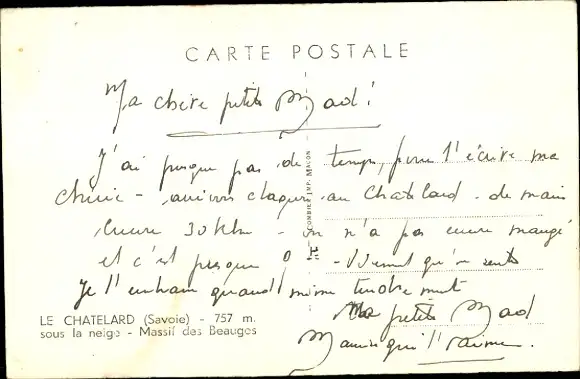 CARTE POSTALE
Ma chère petite Mad !
J'ai presque pas de temps, pour t'écrire ma
Chérie - au Chatelard - de
encore 30 Klm - on n'a pas encore mangé
et c'est presque
Je t'embrasse quand même tendrement
Ma petite Mad
qui t'aime.
COMBIER IMP. MACON
LE CHATELARD (Savoie) - 757 m.
sous la neige - Massif des Beauges